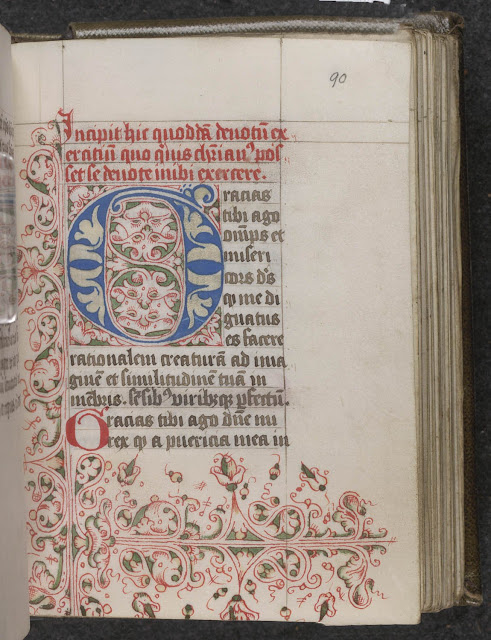 90
Incipit hic quoddā deuotū ex
ercitiū quo quis chr̄ianꝰ pos
set se deuote inibi exercere.
Gracias
tibi ago
om̄ps et
miseri
cors dn̄s
qui me di
gnatus
es facere
rationalem creaturā ad ima
ginē et similitudinē tuā in
mēbris. sēsibꝰ viribꝫqꝫ ꝑfectū.
Gracias tibi ago dn̄e mi
rex qͥ a puericia mea in